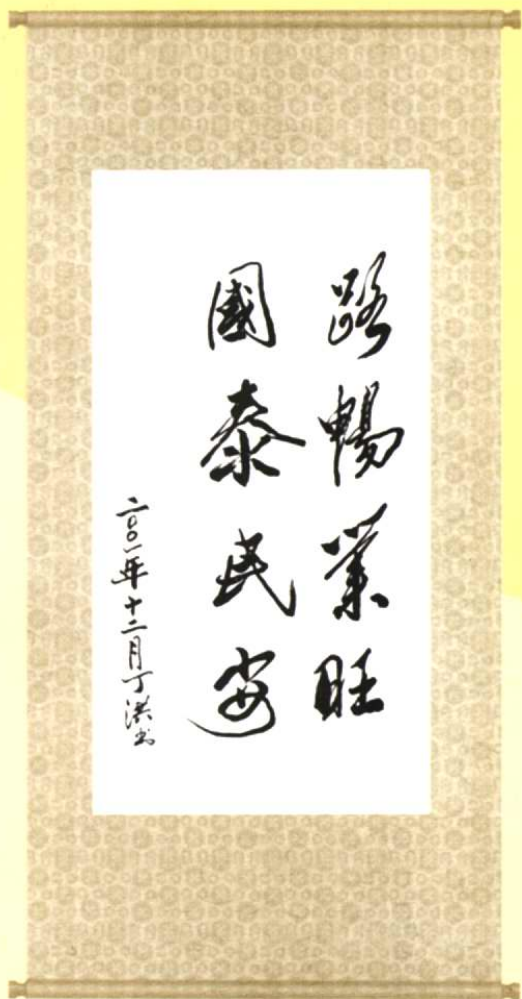 路暢業旺
國泰民安
二〇〇一年十二月丁洪书